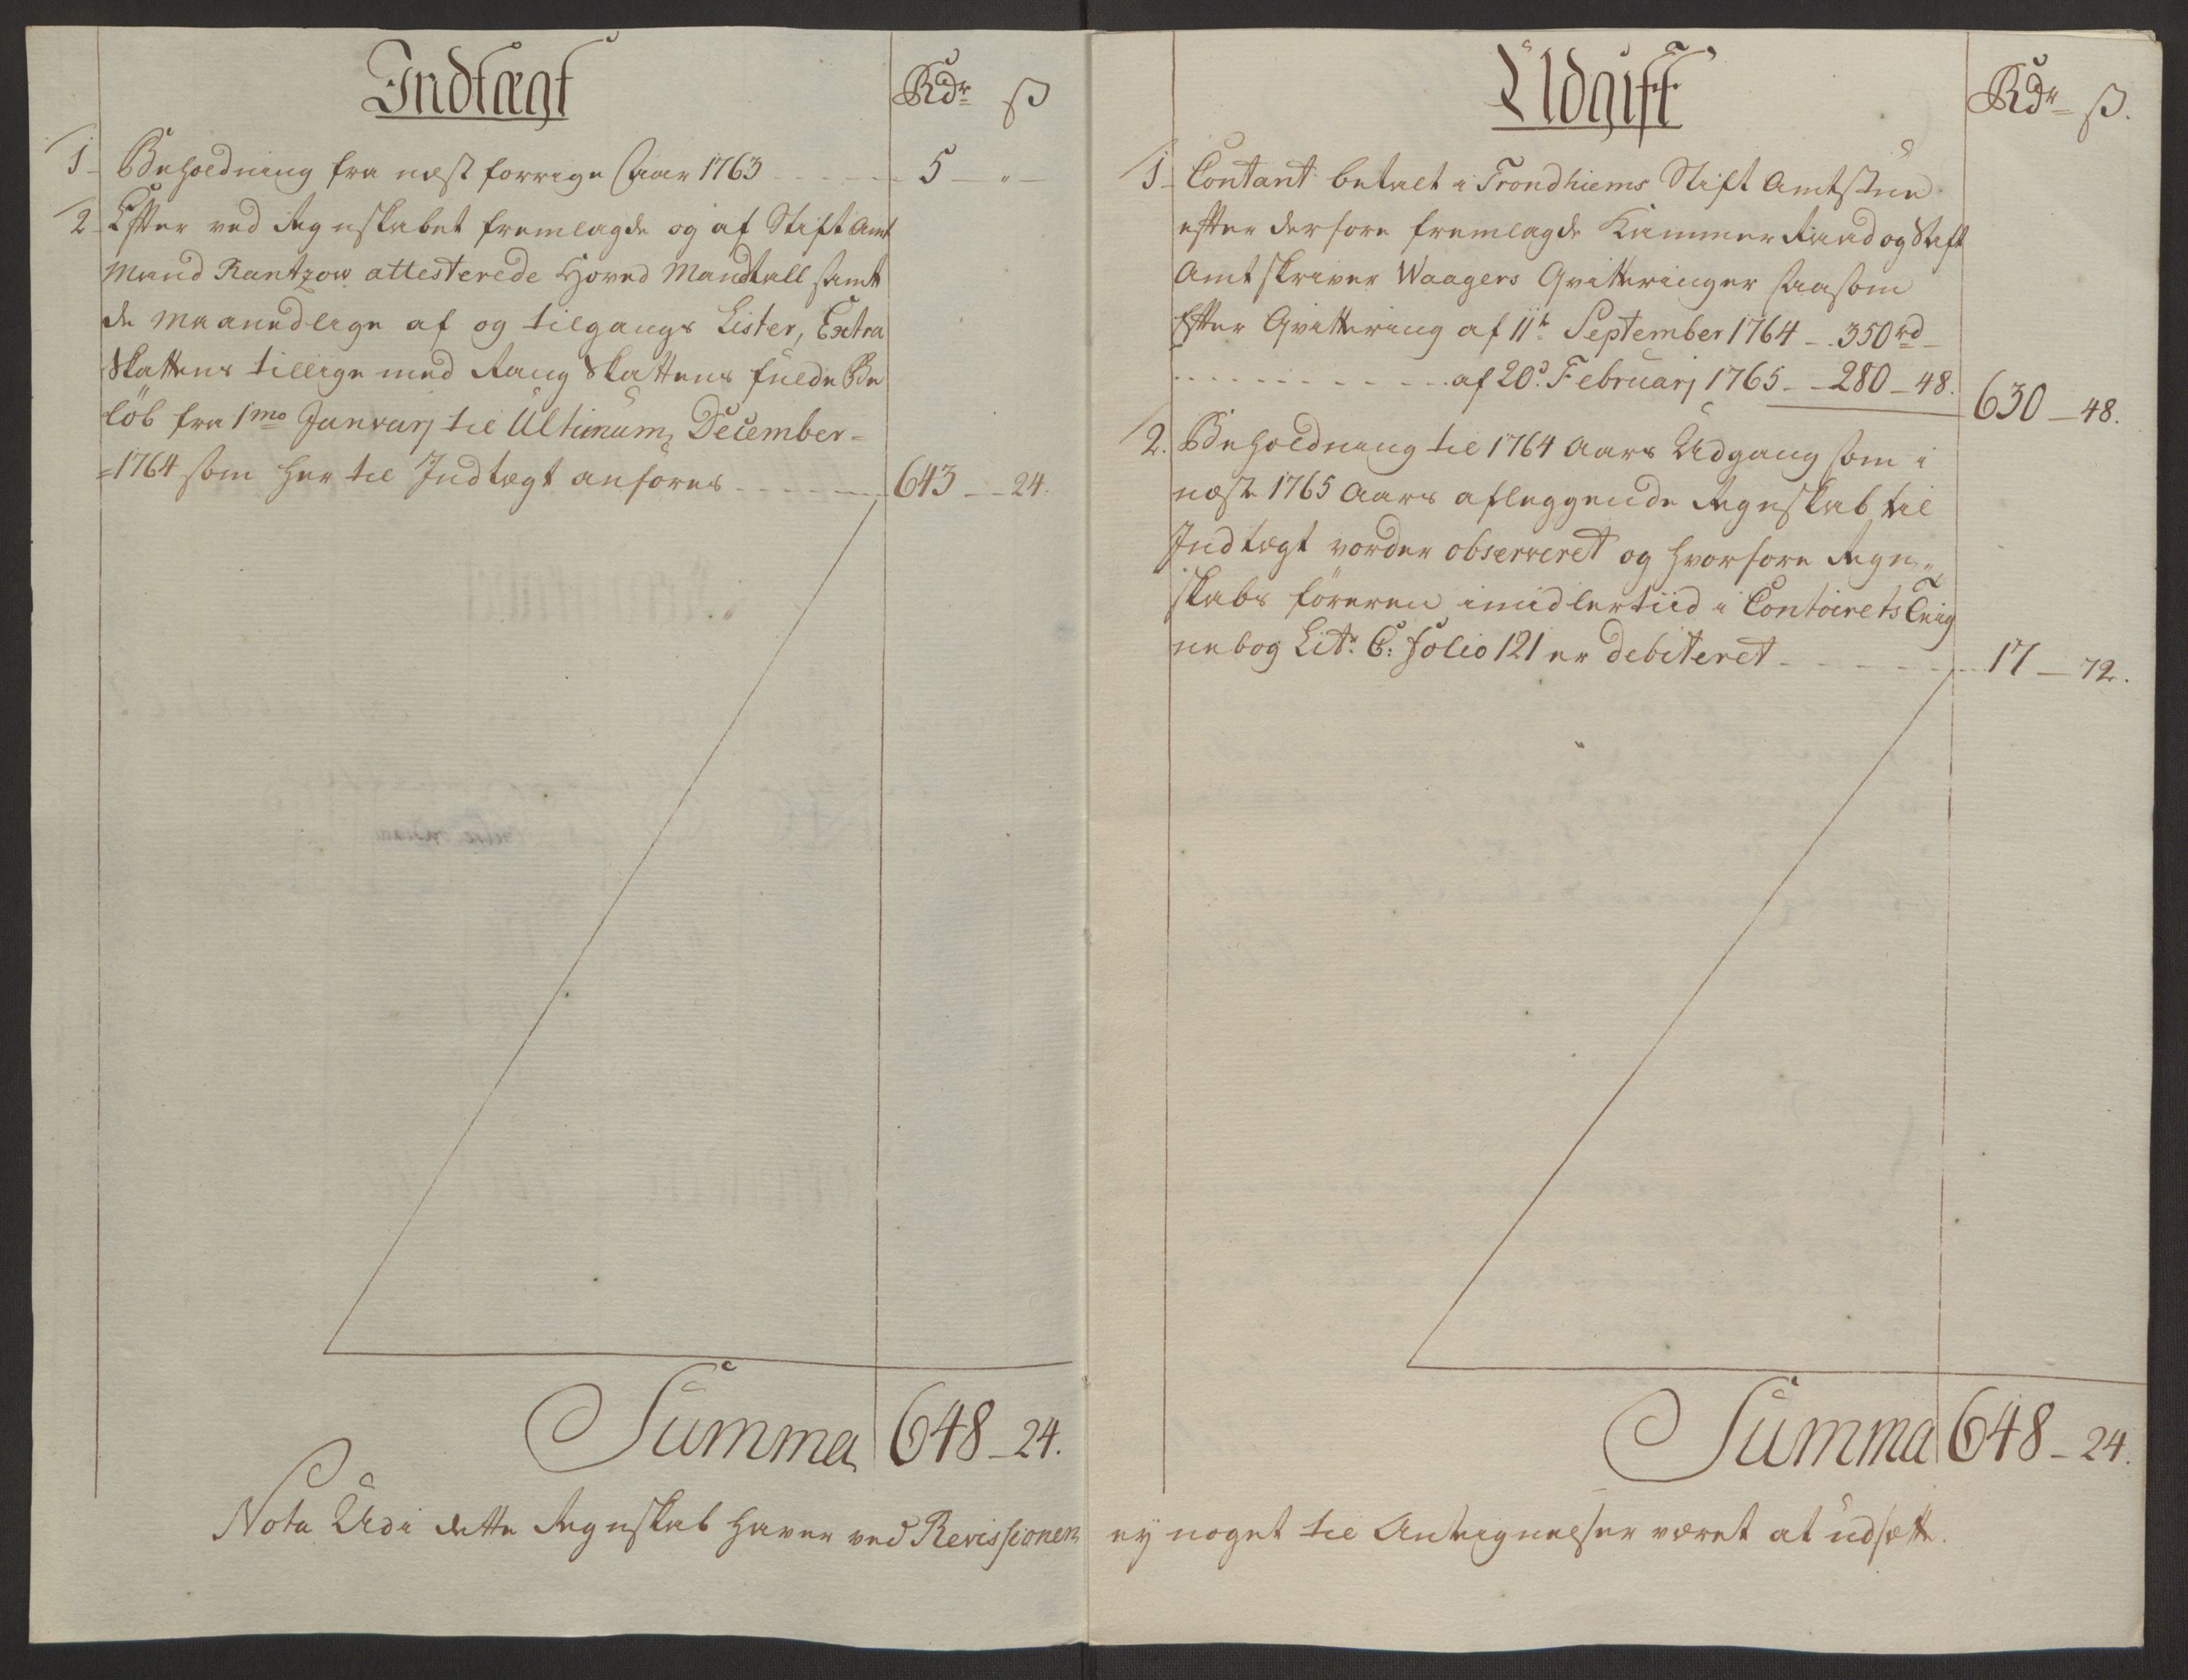 Indtægt
Rdr ß
1 Beholdning fra næst forrige Aar 1763 5 - " -
2 Efter ved Regnskabet fremlagde og af Stift Amt
Mand Rantzow attesterede Hoved Mandtall samt
de Maanedlige af og tilgangs Lister, Extra
Skattens tillige med Rang Skattens fulde Be
löb fra 1mo Januarj til Ultimum December =
=1764 som her til Indtægt anföres 643 - 24.
Summa 648 - 24.
Nota Udi dette Regnskab haver ved Revissionen
Udgift
Rdr ß.
1 Contant betalt i Trondhiems Stift Amtstue
efter derfore fremlagde Kammer Raad og Stift
Amtskriver Waagers Qvitteringer saasom
Efter Qvittering af 11te September 1764 - 350rd
af 20d Februarj 1765 - 280 - 48. 630 - 48.
2. Beholdning til 1764 Aars Udgang som i
næste 1765 Aars aflæggende Regnskab til
Indtægt vorder observeret og hvorfore Regn-
skabs föreren imidlertiid i Contoirets
nebog Litr C: folio 121 er debiteret 17 - 72.
Summa 648 - 24.
ey noget til Antegnelser været at udsætte.